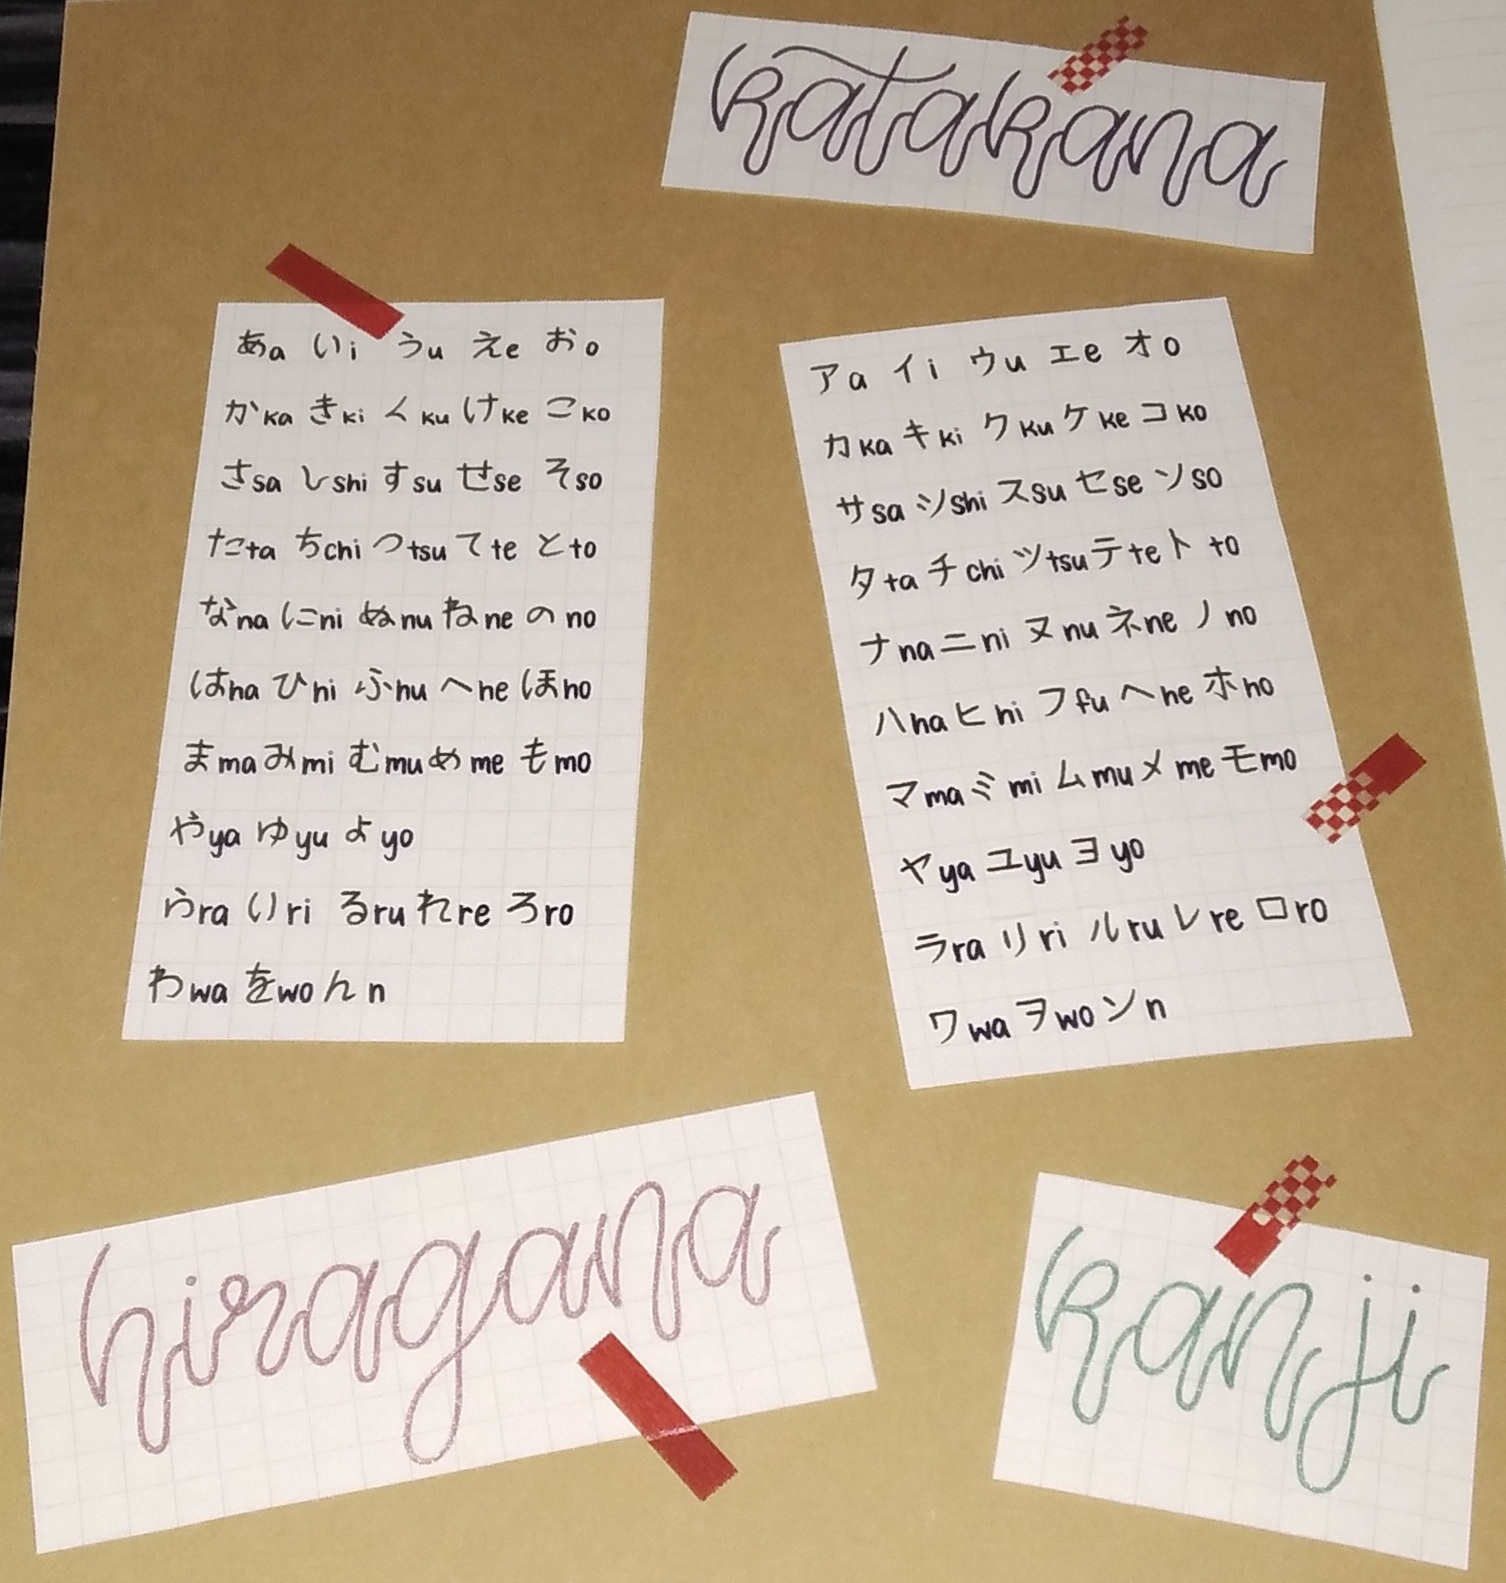 katakana
あa いi うu えe おo
かka きki くku けke こko
さsa しshi すsu せse そso
たta ちchi つtsu てte とto
なna にni ぬnu ねne のno
はha ひhi ふhu へhe ほho
まma みmi むmu めme もmo
やya ゆyu よyo
らra りri るru れre ろro
わwa をwo んn
アa イi ウu エe オo
カka キki クku ケke コko
サsa シshi スsu セse ソso
タta チchi ツtsu テte トto
ナna ニni ヌnu ネne ノno
ハha ヒhi フfu ヘhe ホho
マma ミmi ムmu メme モmo
ヤya ユyu ヨyo
ラra リri ルru レre ロro
ワwa ヲwo ンn
hiragana
kanji